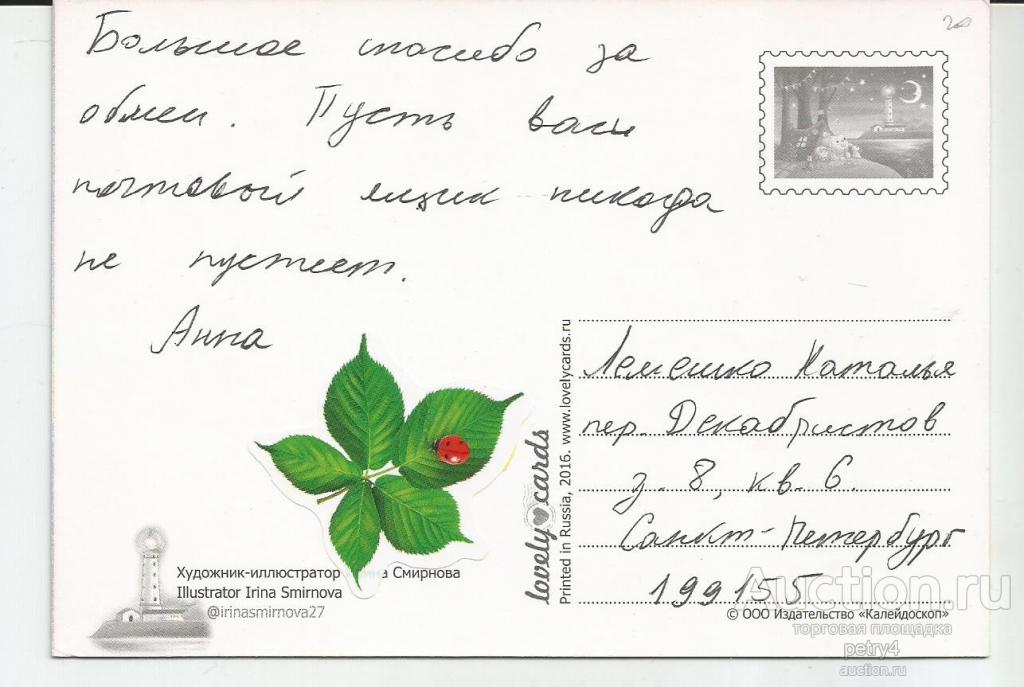 Большое спасибо за
обмен. Пусть ваш
почтовый ящик никогда
не пустеет.
Анна
Лемешко Наталья
пер. Декабристов
д. 8, кв. 6.
Санкт-Петербург
199155
lovely cards
Printed in Russia, 2016. www.lovelycards.ru
Художник-иллюстратор Смирнова
Illustrator Irina Smirnova
@irinasmirnova27
© ООО Издательство «Калейдоскоп»
Auction.ru
торговая площадка
petry4
auction.ru